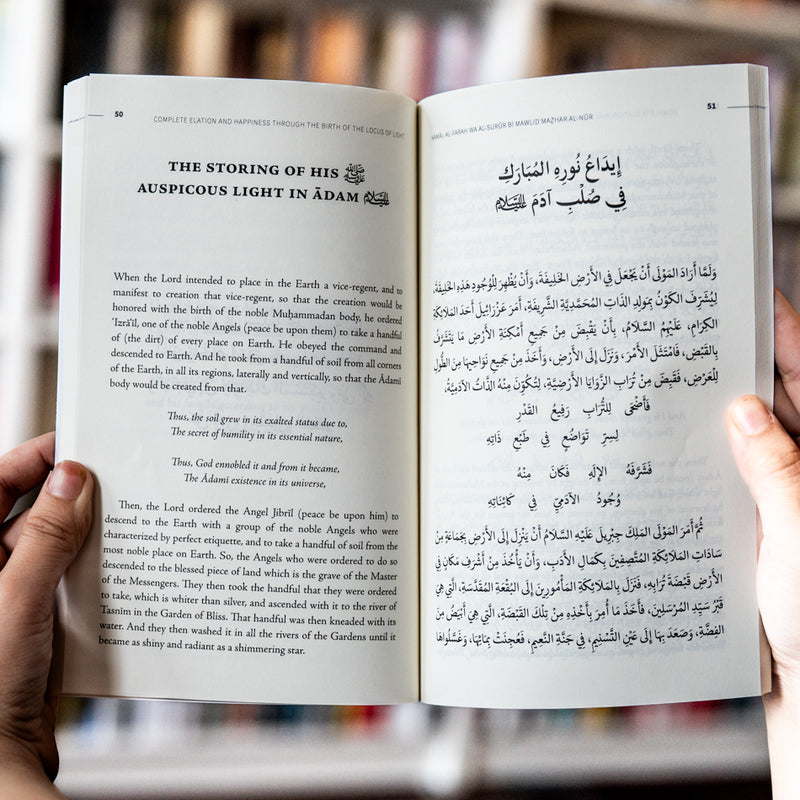 50
COMPLETE ELATION AND HAPPINESS THROUGH THE BIRTH OF THE LOCUS OF LIGHT
THE STORING OF HIS ﷺ
AUSPICOUS LIGHT IN ĀDAM
When the Lord intended to place in the Earth a vice-regent, and to
manifest to creation that vice-regent, so that the creation would be
honored with the birth of the noble Muḥammadan body, he ordered
ʿIzrāʾīl, one of the noble Angels (peace be upon them) to take a handful
of (the dirt) of every place on Earth. He obeyed the command and
descended to Earth. And he took from a handful of soil from all corners
of the Earth, in all its regions, laterally and vertically, so that the Ādamī
body would be created from that.
Thus, the soil grew in its exalted status due to,
The secret of humility in its essential nature,
Thus, God ennobled it and from it became,
The Ādami existence in its universe,
Then, the Lord ordered the Angel Jibrīl (peace be upon him) to
descend to the Earth with a group of the noble Angels who were
characterized by perfect etiquette, and to take a handful of soil from the
most noble place on Earth. So, the Angels who were ordered to do so
descended to the blessed piece of land which is the grave of the Master
of the Messengers. They then took the handful that they were ordered
to take, which is whiter than silver, and ascended with it to the river of
Tasnīm in the Garden of Bliss. That handful was then kneaded with its
water. And they then washed it in all the rivers of the Gardens until it
became as shiny and radiant as a shimmering star.
51
AL-FARAH WA AL-SURŪR BI MAWLID MAẒHAR AL-NŪR
إِيدَاعُ نُورِهِ المُبَارَكِ
فِي صُلْبِ آدَمَ
وَلَمَّا أَرَادَ المَوْلَى أَنْ يَجْعَلَ فِي الأَرْضِ الخَلِيفَةَ، وَأَنْ يُظْهِرَ لِلْوُجُودِ هَذِهِ الخَلِيفَةَ،
لِيُشَرِّفَ الكَوْنَ بِمَولِدِ الذَّاتِ المُحَمَّدِيَّةِ الشَّرِيفَةِ، أَمَرَ عَزْرَائِيلَ أَحَدَ المَلَائِكَةِ
الكِرَامِ، عَلَيْهِمُ السَّلَامُ، بِأَنْ يَقْبِضَ مِنْ جَمِيعِ أَمْكِنَةِ الأَرْضِ مَا يَتَشَرَّفُ
بِالقَبْضِ، فَامْتَثَلَ الأَمْرَ، وَنَزَلَ إِلَى الأَرْضِ، وَأَخَذَ مِنْ جَمِيعِ نَوَاحِيهَا مِنَ الطُّولِ
لِلْعَرْضِ، فَقَبَضَ مِنْ تُرَابِ الزَّوَايَا الأَرْضِيَّةِ، لِتُكَوَّنَ مِنْهُ الذَّاتُ الآدَمِيَّةُ،
فَأَضْحَى لِلتُّرَابِ رَفِيعُ القَدْرِ
لِسِرِّ تَوَاضُعٍ فِي طَبْعِ ذَاتِهِ
فَشَرَّفَهُ الإِلَهُ فَكَانَ مِنْهُ
وُجُودُ الآدَمِيِّ فِي كَائِنَاتِهِ
ثُمَّ أَمَرَ المَوْلَى المَلِكَ جِبْرِيلَ عَلَيْهِ السَّلَامُ أَنْ يَنْزِلَ إِلَى الأَرْضِ بِجَمَاعَةٍ مِنْ
سَادَاتِ المَلَائِكَةِ المُتَّصِفِينَ بِكَمَالِ الأَدَبِ، وَأَنْ يَأْخُذَ مِنْ أَشْرَفِ مَكَانٍ فِي
الأَرْضِ قَبْضَةَ تُرَابِهِ، فَنَزَلَ بِالمَلَائِكَةِ المَأْمُورِينَ إِلَى البُقْعَةِ المُقَدَّسَةِ، الَّتِي هِيَ
قَبْرُ سَيِّدِ المُرْسَلِينَ، فَأَخَذَ مَا أُمِرَ بِأَخْذِهِ مِنْ تِلْكَ القَبْضَةِ، الَّتِي هِيَ أَبْيَضُ مِنَ
الفِضَّةِ، وَصَعَدَ بِهَا إِلَى عَيْنِ التَّسْنِيمِ، فِي جَنَّةِ النَّعِيمِ، فَعُجِنَتْ بِمَائِهَا، وَغَسَّلُوهَا